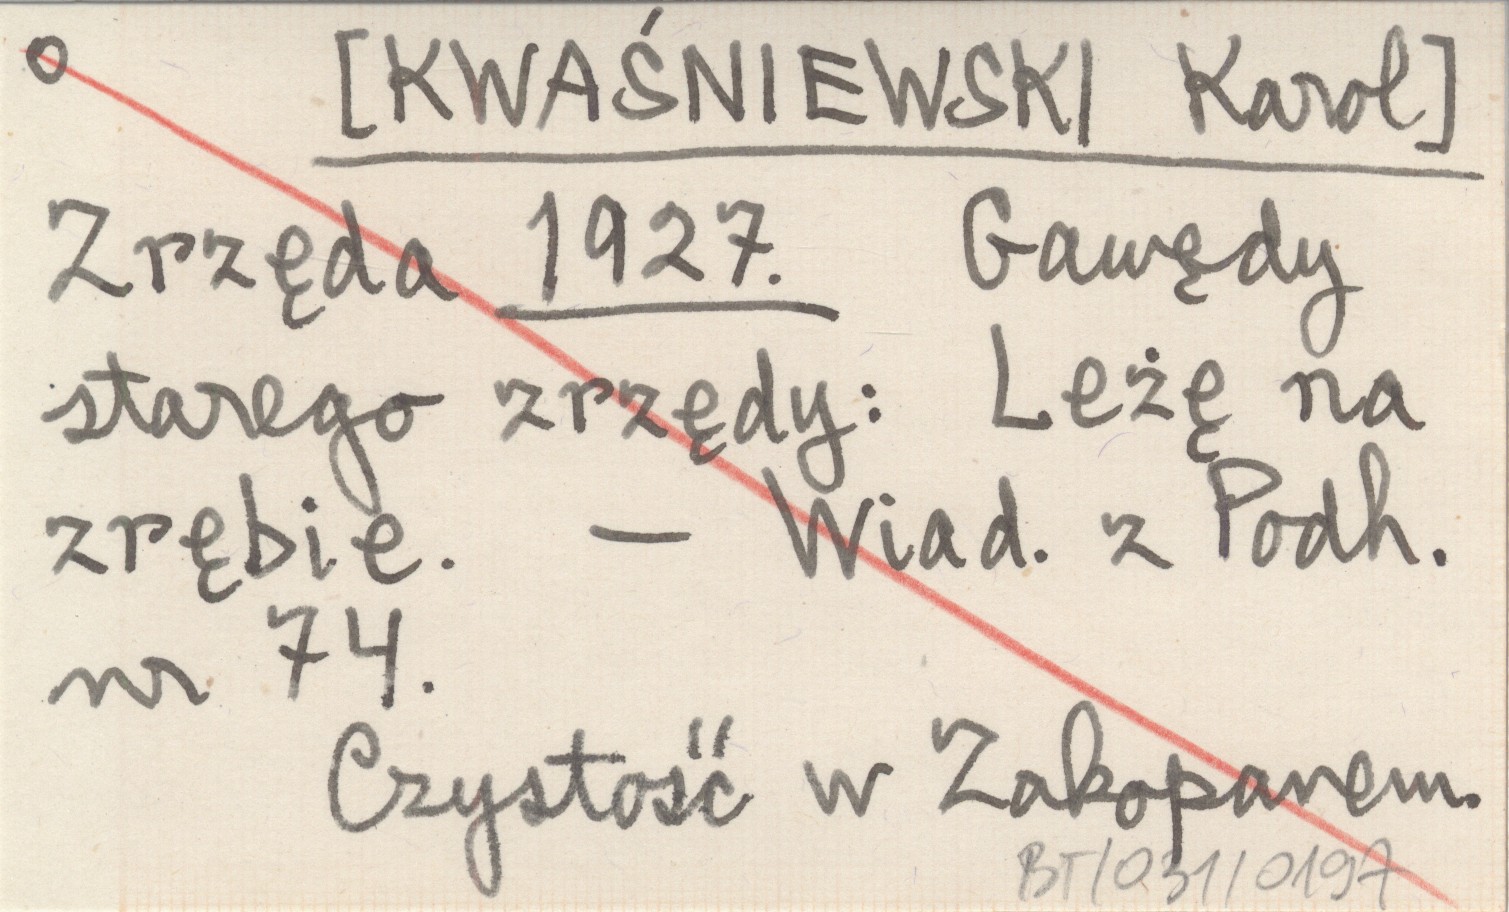 o [KWAŚNIEWSKI Karol]
Zrzęda 1927. Gawędy
starego zrzędy: Leżę na
zrębie. — Wiad. z Podh.
nr 74.
Czystość w Zakopanem.
BT/031/0197